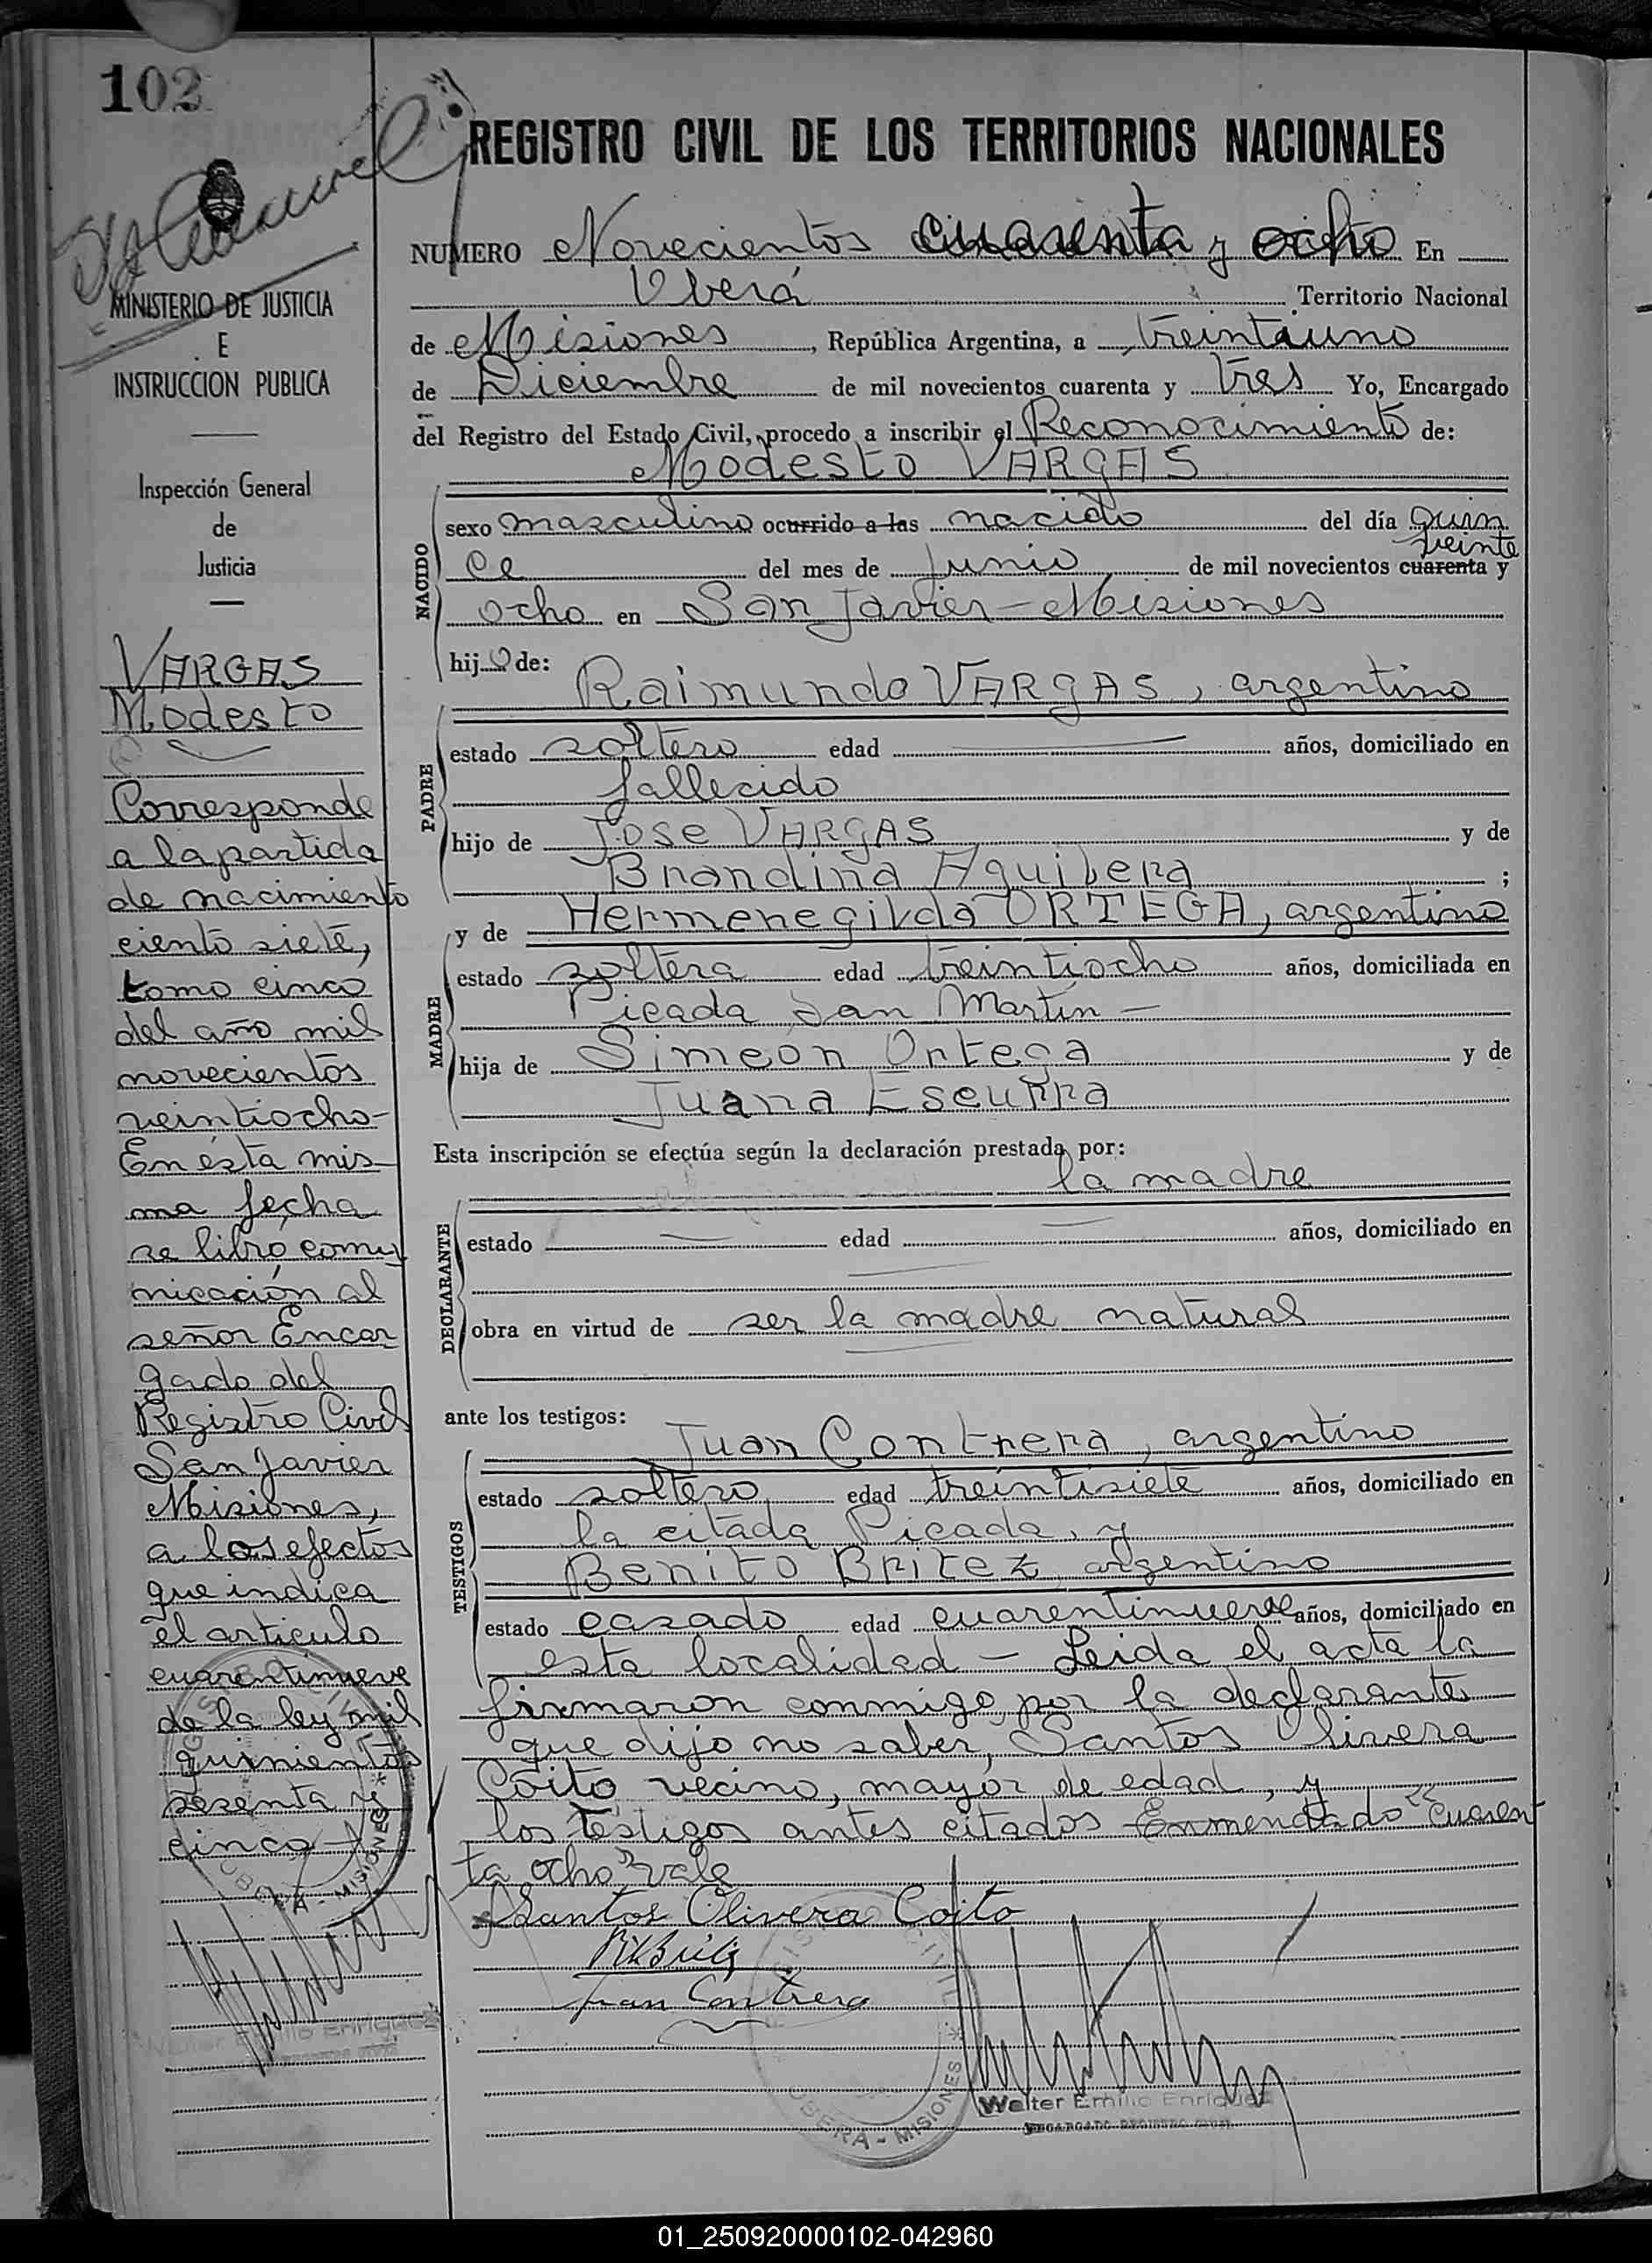 102
REGISTRO CIVIL DE LOS TERRITORIOS NACIONALES
NUMERO Novecientos cuarenta y ocho En
Oberá Territorio Nacional
de Misiones, República Argentina, a treintauno
de Diciembre de mil novecientos cuarenta y tres Yo, Encargado
del Registro del Estado Civil, procedo a inscribir el Reconocimiento de:
Modesto VARGAS
NACIDO
sexo masculino ocurrido a las nacido del día quin
ce del mes de Junio de mil novecientos cuarenta y veinte
ocho en San Javier - Misiones
hijo de:
Raimundo VARGAS, argentino
PADRE
estado soltero edad — años, domiciliado en
fallecido
hijo de Jose VARGAS y de
Brandina Aguilera ;
y de Hermenegilda ORTEGA, argentina
MADRE
estado soltera edad treintiocho años, domiciliada en
Picada San Martín —
hija de Simeon Ortega y de
Juana Escurra
Esta inscripción se efectúa según la declaración prestada por:
la madre
DECLARANTE
estado — edad — años, domiciliado en
obra en virtud de ser la madre natural
ante los testigos:
Juan Contrera, argentino
TESTIGOS
estado soltero edad treintisiete años, domiciliado en
la citada Picada, y
Benito BRITEZ, argentino
estado casado edad cuarentinueve años, domiciliado en
esta localidad — Leida el acta la
firmaron conmigo, por la declarante
que dijo no saber, Santos Olivera
Coito vecino, mayor de edad, y
los testigos antes citados Enmendado "cuaren
ta ocho" vale
Santos Olivera Coito
Juan Contrera
Walter Emilio Enriquez
ENCARGADO REGISTRO CIVIL
OBERA - MISIONES
MINISTERIO DE JUSTICIA
E
INSTRUCCION PUBLICA
Inspección General
de
Justicia
VARGAS
Modesto
Corresponde
a la partida
de nacimiento
ciento siete,
tomo cinco
del año mil
novecientos
veintiocho-
En ésta mis-
ma fecha
se libró comu
nicación al
señor Encar
gado del
Registro Civil
San Javier
Misiones,
a los efectos
que indica
el artículo
cuarentinueve
de la ley mil
quinientos
sesenta y
cinco
OBERA - MISIONES
Walter Emilio Enriquez
01_250920000102-042960